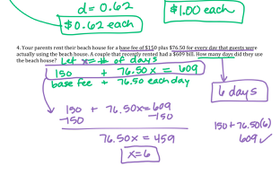 d = 0.62
$0.62 each
$1.00 each
4. Your parents rent their beach house for a base fee of $150 plus $76.50 for every day that guests were
actually using the beach house. A couple that recently rented had a $609 bill. How many days did they use
the beach house?
Let x = # of days
150 + 76.50x = 609
base fee + 76.50 each day
6 days
150 + 76.50x = 609
-150 -150
76.50x = 459
x = 6
150 + 76.50(6)
609 ✓